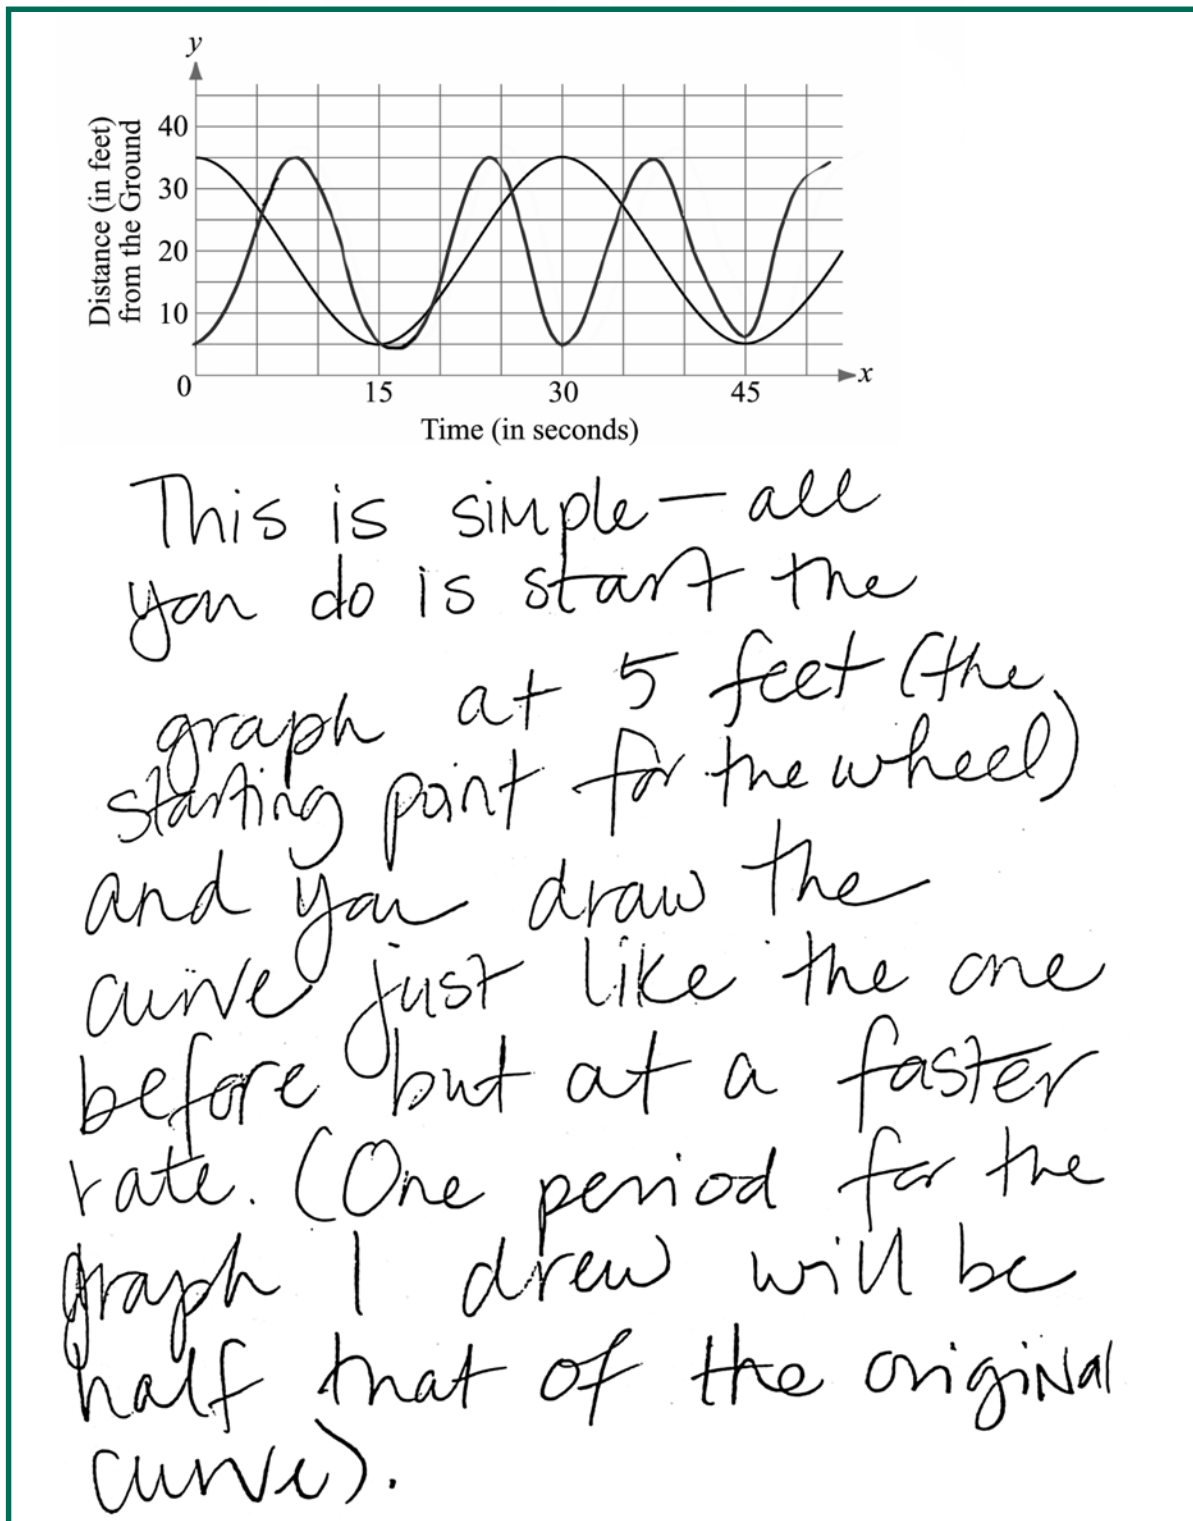 y
Distance (in feet)
from the Ground
40
30
20
10
0
15
30
45
x
Time (in seconds)
This is simple — all
you do is start the
graph at 5 feet (the
starting point for the wheel)
and you draw the
curve just like the one
before but at a faster
rate. (One period for the
graph I drew will be
half that of the original
curve).